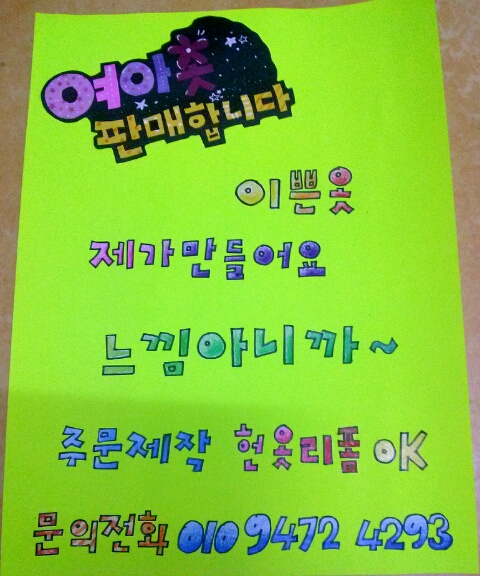 여아옷
판매합니다
이쁜옷
제가만들어요
느낌아니까~
주문제작 헌옷리폼 OK
문의전화 010 9472 4293